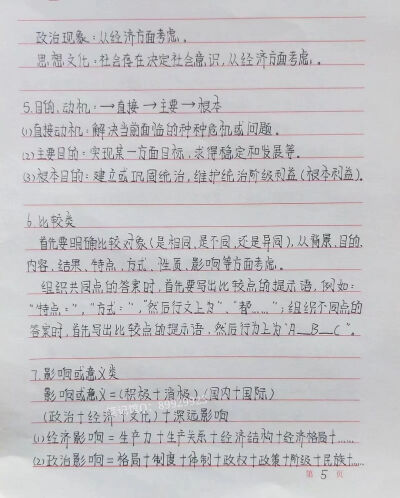 政治现象：从经济方面考虑。
思想文化：社会存在决定社会意识，从经济方面考虑。
5.目的、动机：→直接→主要→根本
(1)直接动机：解决当前面临的种种危机或问题。
(2)主要目的：实现某一方面目标，求得稳定和发展等。
(3)根本目的：建立或巩固统治，维护统治阶级利益（根本利益）。
6.比较类
首先要明确比较对象（是相同，是不同，还是异同），从背景、目的、
内容、结果、特点、方式、性质、影响等方面考虑。
组织共同点的答案时，首先要写出比较点的提示语，例如：
“特点：”，“方式：”，“然后行文上为”、“都……”；组织不同点的
答案时，首先写出比较点的提示语，然后行为上为“A__B__C”。
7.影响或意义类
影响或意义＝（积极＋消极）（国内＋国际）
（政治＋经济＋文化）＋深远影响
(1)经济影响＝生产力＋生产关系＋经济结构＋经济格局＋……
(2)政治影响＝格局＋制度＋体制＋政权＋政策＋阶级＋民族＋……
第 5 页